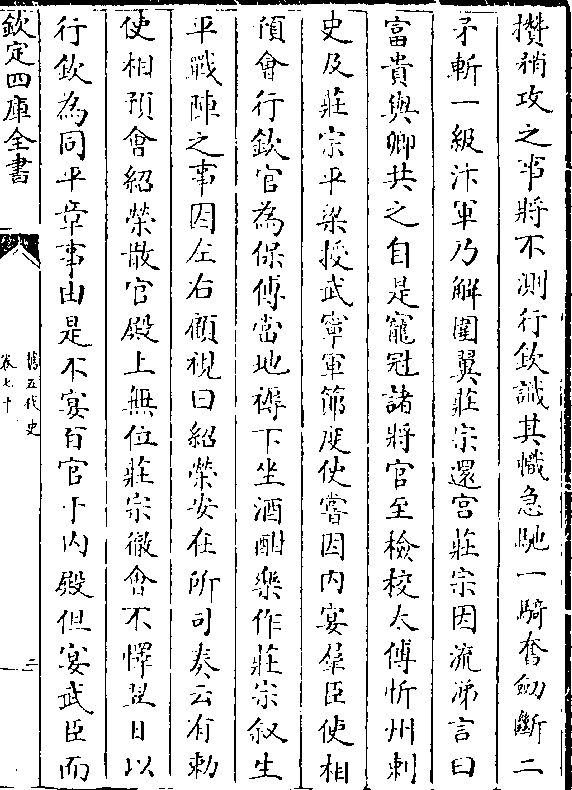 攢矟攻之事將不測行欽識其幟急馳一騎奮劒斷二
矛斬一級汴軍乃解圍翼莊宗還宫莊宗因流涕言曰
富貴與卿共之自是寵冠諸將官至檢校太傅忻州刺
史及莊宗平梁授武寧軍節度使嘗因内宴羣臣使相
預會行欽官為保傅當地褥下坐酒酣樂作莊宗叙生
平戰陣之事因左右顧視曰紹榮安在所司奏云有勅
使相預會紹榮散官殿上無位莊宗徹會不懌翌日以
行欽為同平章事由是不宴百官于内殿但宴武臣而
欽定四庫全書
舊五代史
卷七十
二